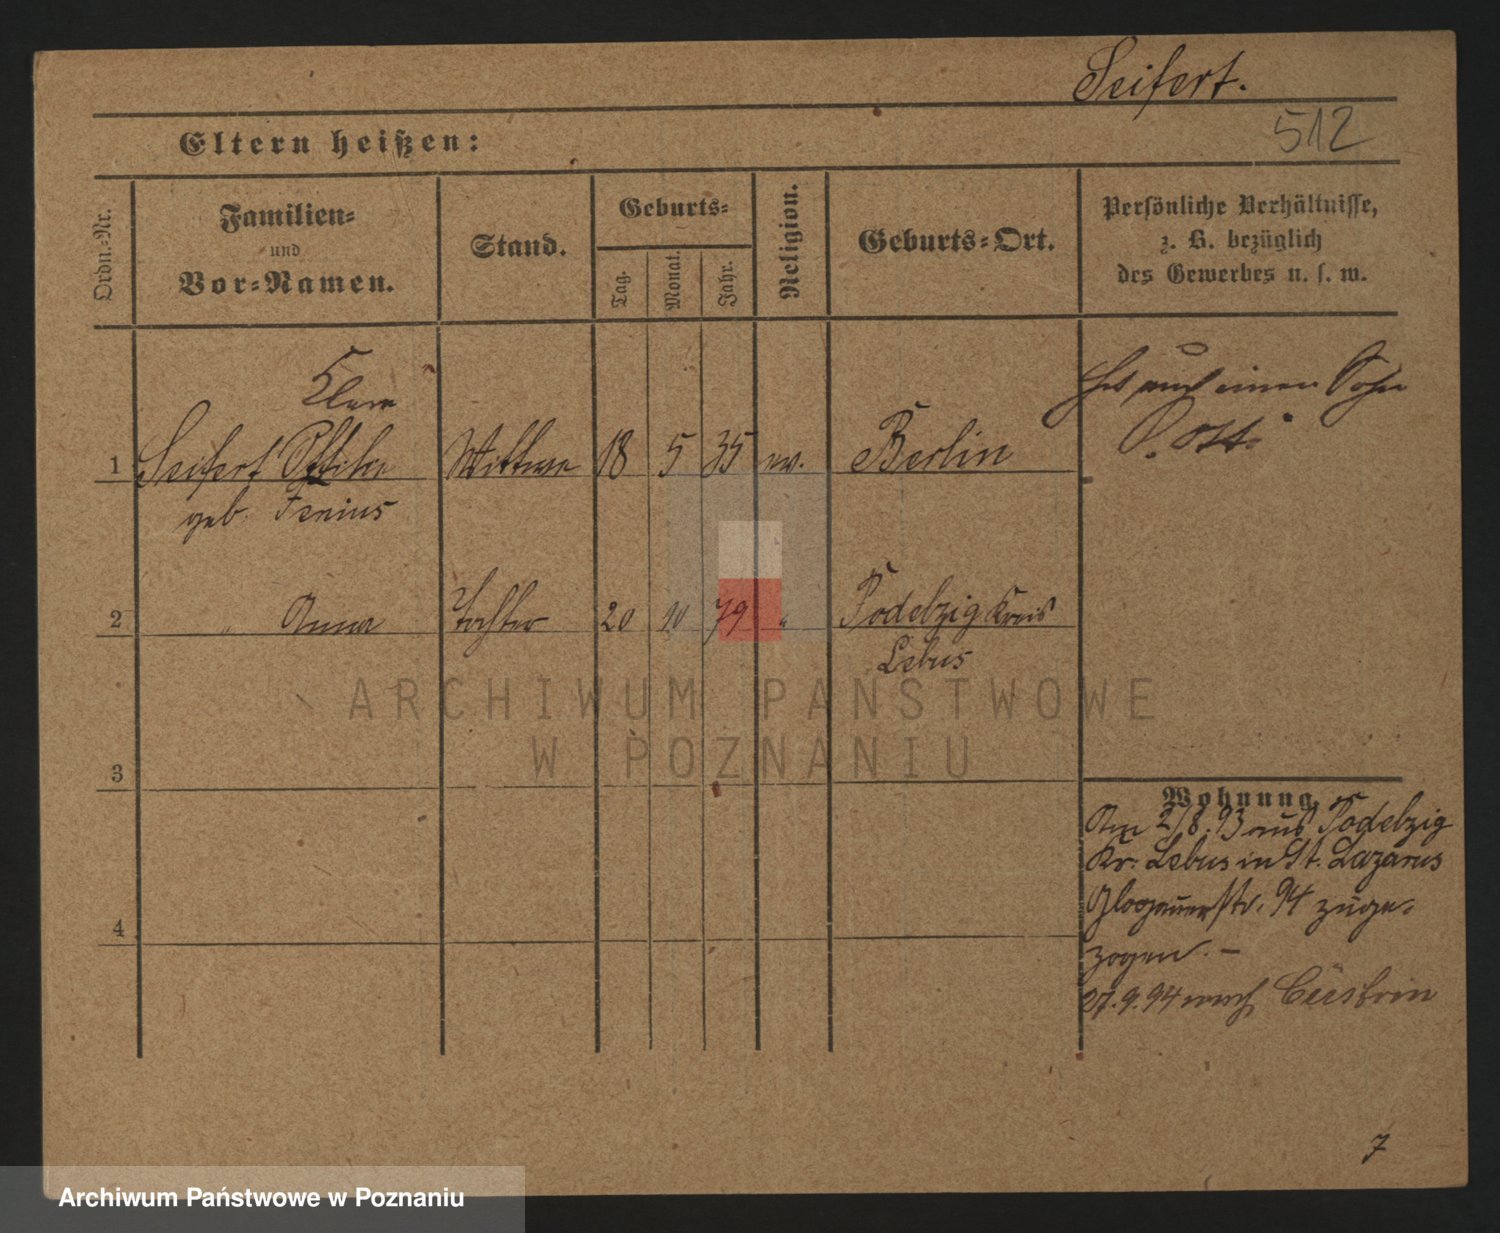 Seifert.
512
Eltern heißen:
Ordn.-Nr.
Familien-
und
Vor-Namen.
Stand.
Geburts-
Tag.
Monat.
Jahr.
Religion.
Geburts-Ort.
Persönliche Verhältnisse,
z. B. bezüglich
des Gewerbes u. s. w.
Klara
1 Seifert Wittwe 18 5 35 ev. Berlin
geb. Fenius
einen Sohn
Otto
2 " Anna Tochter 20 10 79 " Podelzig Kreis
Lebus
3
4
Wohnung.
Am 2/8. 93 aus Podelzig
Kr. Lebus in St. Lazarus
Glogauerstr. 94 zuge-
zogen. –
27.9.94 nach Cüstrin
7
ARCHIWUM PAŃSTWOWE
W POZNANIU
Archiwum Państwowe w Poznaniu